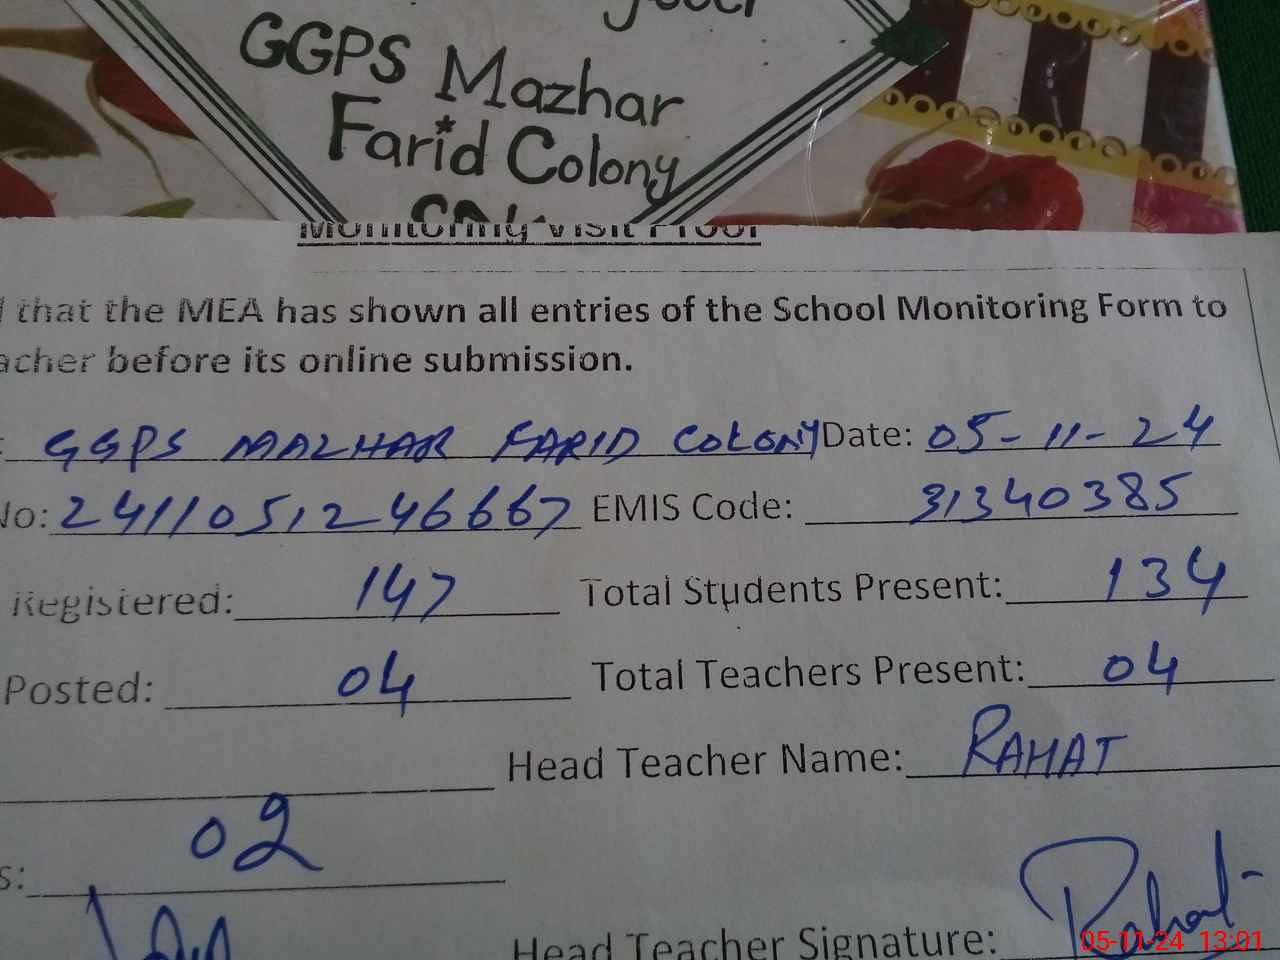 GGPS Mazhar
Farid Colony
Monitoring Visit Proof
that the MEA has shown all entries of the School Monitoring Form to
acher before its online submission.
: GGPS MAZHAR FARID COLONY Date: 05-11-24
No: 241105124666​7 EMIS Code: 31340385
Registered: 147 Total Students Present: 134
Posted: 04 Total Teachers Present: 04
Head Teacher Name: RAHAT
s: 02
Head Teacher Signature: Rahat
05-11-24 13:01